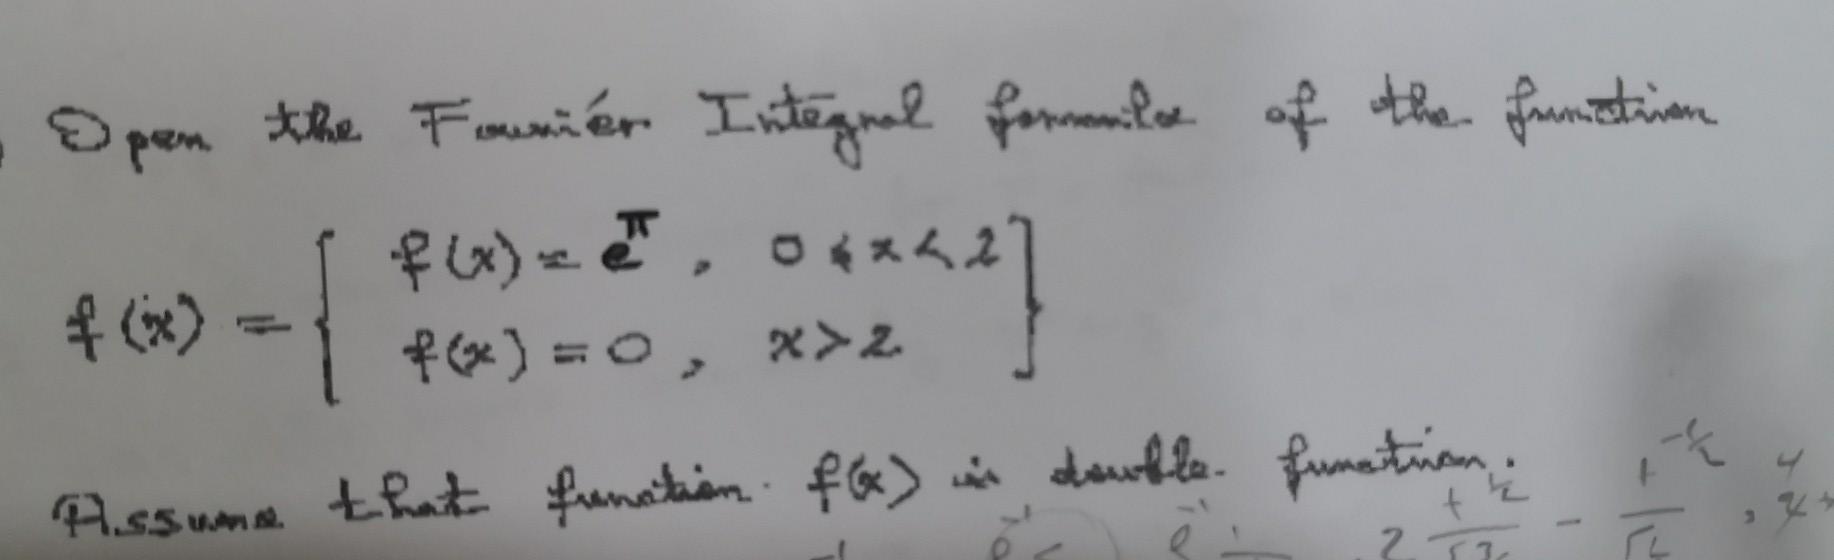 Open the Fourier Integral formula of the function
f(x) = { f(x) = e^π, 0 < x < 2
f(x) = 0, x > 2 }
Assume that function f(x) is double function.